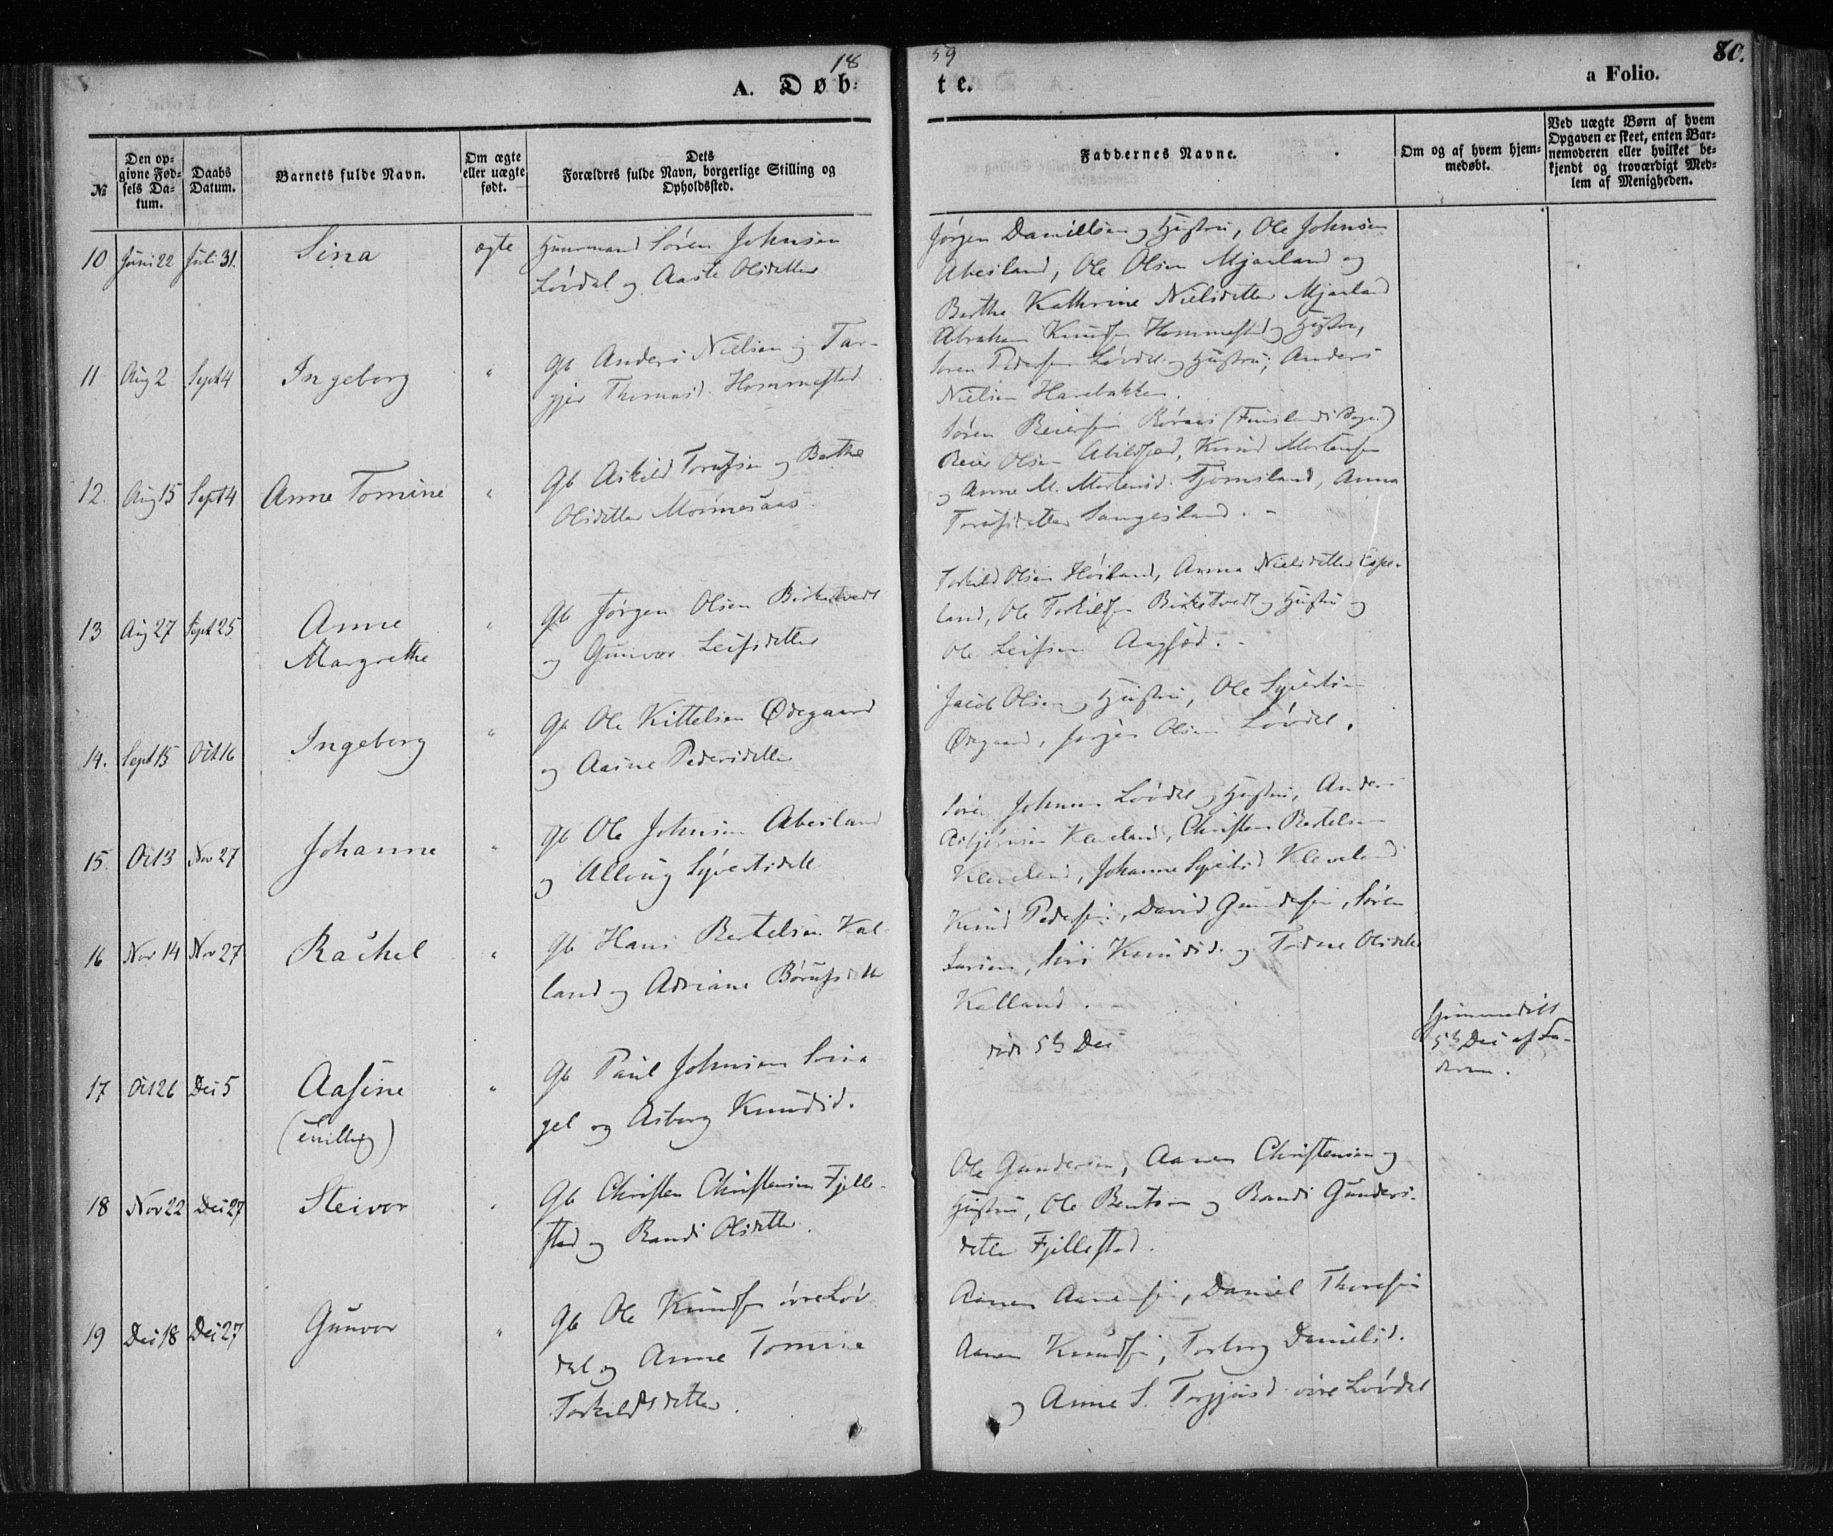 18
59
80.
A. Døb-
te.
a Folio.
№
Den op-
givne Fød-
sels Da-
tum.
Daabs
Datum.
Barnets fulde Navn.
Om ægte
eller uægte
født.
Dets
Forældres fulde Navn, borgerlige Stilling og
Opholdssted.
Faddernes Navne.
Om og af hvem hjem-
medøbt.
Ved uægte Børn af hvem
Opgaven er skeet, enten Bar-
nemoderen eller hvilket be-
kjendt og troværdigt Med-
lem af Menigheden.
10 Juni 22 Juli 31. Sina ægte Huusmand Søren Johnsen
Løvdal og Aaste Olsdatter
Jørgen Daniellsen og Hustru, Ole Johnsen
Abesland, Ole Olsen Mjaaland og
Berthe Kathrine Nielsdatter Mjaaland
11 Aug 2 Sept 4 Ingeborg " Gb Anders Nielsen og Tar-
gjer Thomasd. Hommestad
Abraham Knudsen Hommestad og Hustru,
Søren Pedersen Løvdal og Hustru, Anders
Nielsen Harebakken.
12. Aug 15 Sept 4 Anne Tomine " Gb Askild Torufsen og Berthe
Olsdatter
Søren Reiersen (Finslands Sogn)
Reier Olsen Knud Mortensen
og Anne M. Mortensd. Tjomsland, Anna
Torufsdatter
13 Aug 27 Sept 25 Anne
Margrethe
" Gb Jørgen Olsen Birketvedt
og Gunvor Leifsdatter
Torkild Olsen Høiland, Anna Nielsdatter Espe-
land, Ole Torkildsen Birketvedt og Hustru og
Ole Leifsen
14. Sept 15 Oct 16 Ingeborg " Gb Ole Kittelsen Ødegaard
og Aasne Pedersdatter
Jacob Olsen og Hustru, Ole Syvertsen
Ødegaard, Olsen Løvdal.
15. Oct 3 Nov 27 Johanne " Gb Ole Johnsen Abesland
og Allaug Syvertsdatt
Søren Johnsen Løvdal og Hustru, Anders
Asbjørnsen Kleveland, Christen Bertelsen
Kleveland, Johanne Syvertsd Kleveland
16 Nov 14 Nov 27 Rachel " Gb Hans Bertelsen Kal-
land og Adriane Børufsdatter
Knud Pedersen, David Gundersen, Søren
Siri Knudsd. og Tomine Olsdatter
Kalland.
17 Oct 26 Dec 5 Aasine
" Gb Paul Johnsen
og Asborg Knudsd.
død 5te Dec
hjemmedøbt
5te Dec af Fa-
deren.
18 Nov 22 Dec 27 Steivor " Gb Christen Christensen Fjelle-
stad og Randi Olsdatter.
Ole Gundersen, Aanen Christensen og
Hustru, Ole Bentsen og Randi Gunders-
datter Fjellestad.
19 Dec 18 Dec 27 Gunvor " Gb Ole Knudsen øvre Løv-
dal og Anne Tomine
Torkildsdatter.
Aanen Aanensen, Daniel Thoresen
Aanen Knudsen, Torborg Danielsd.
og Anne S. Torgjusd øvre Løvdal